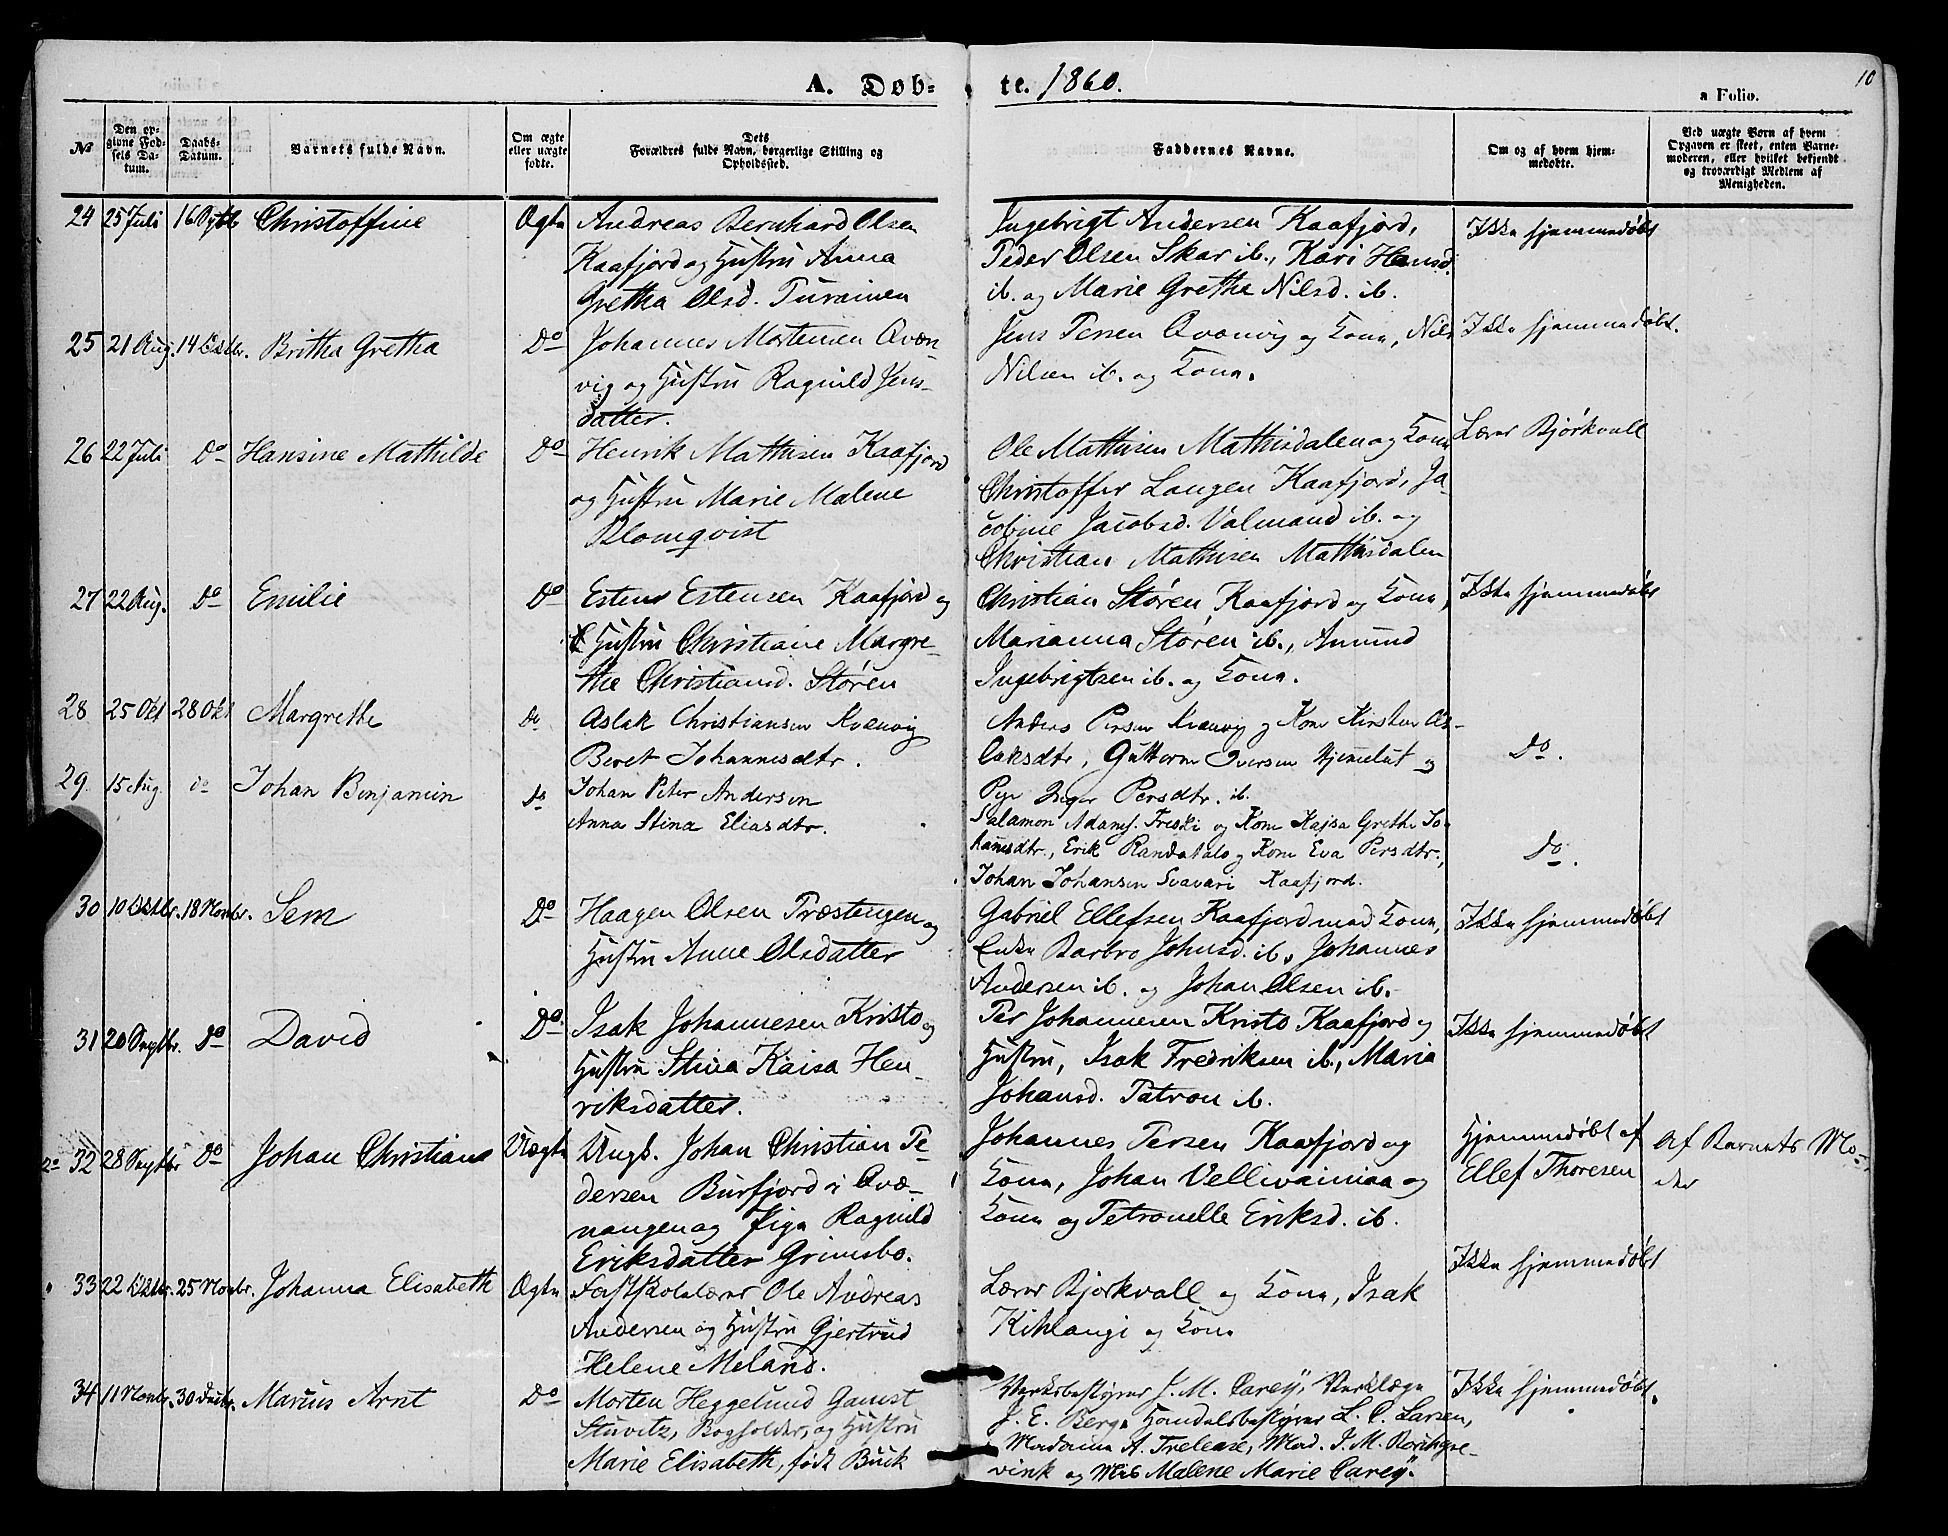 A. Døb- te. 1860.
10
a Folio.
No
Den op-
givne Fød-
sels Da-
tum.
Daabs-
Datum.
Barnets fulde Navn.
Om ægte
eller uægte
fødte.
Dets
Forældres fulde Navn, borgerlige Stilling og
Opholdssted.
Faddernes Navne.
Om og af hvem hjem-
medøbte.
Ved uægte Børn af hvem
Opgaven er skeet, enten Barne-
moderen, eller hvilket bekjendt
og troværdigt Medlem af
Menigheden.
24 25 Juli 16 Septb Christoffine Ægte Andreas Bernhard Olsen
Kaafjord og Hustru Anna
Gretha Olsd. Turainen
Ingebrigt Andersen Kaafjord,
Peder Olsen Skar ib., Kari Hansd.
ib. og Marie Grethe Nilsd. ib.
Ikke hjemmedøbt
25 21 Aug. 14 Oktbr. Britha Gretha Do Johannes Mortensen Qvæn-
vig og Hustru Ragnild Jens-
datter.
Jens Persen Qvænvig og Kone, Nils
Nilsen ib. og Kone.
Ikke hjemmedøbt.
26 22 Juli Do Hansine Mathilde Do Henrik Mathisen Kaafjord
og Hustru Marie Malene
Blomqvist
Ole Mathisen Mathisdalen og Kone
Christoffer Langen Kaafjord, Ja-
cobine Jacobsd. Valmand ib. og
Christian Mathisen Mathisdalen
Lærer Bjørkvall
27 22 Aug. Do Emilie Do Esten Estensen Kaafjord og
Hustru Christiane Margre-
the Christiansd. Støren
Christian Støren Kaafjord og Kone,
Marianna Støren ib., Amund
Ingebrigtsen ib. og Kone.
Ikke hjemmedøbt
28 25 Okt 28 Okt Margrethe do Aslak Christiansen Kvænvig
Beret Johannesdtr.
Anders Persen Kvænvig og Kone Kirsten As-
laksdtr, Guttorm Iversen Hjemeluft og
Pige Inger Persdtr. ib.
Do.
29. 15 Aug. do Johan Benjamin do Johan Peter Andersen
Anna Stina Eliasdtr.
Salamon Adams. Freski og Kone Kajsa Grethe Jo-
hansdtr., Erik Randatalo og Kone Eva Persdtr.,
Johan Johansen Svavari Kaafjord.
Do.
30 10 Oktbr. 18 Novbr. Sem Do Haagen Olsen Præstengen og
Hustru Anne Olsdatter
Gabriel Ellefsen Kaafjord med Kone,
Enke Barbro Johnsd. ib., Johannes
Andersen ib. og Johan Olsen ib.
Ikke hjemmedøbt
31 20 Septbr. Do David Do. Isak Johannesen Kristo og
Hustru Stina Kaisa Hen-
riksdatter.
Per Johannesen Kristo Kaafjord og
Hustru, Isak Fredriksen ib., Maria
Johansd. Patron ib.
Ikke hjemmedøbt
32 28 Septbr Do Johan Christian Uægte Ungk. Johan Christian Pe-
dersen Burfjord i Qvæ-
nangen og Pige Ragnild
Eriksdatter Grimsbo.
Johannes Persen Kaafjord og
Kone, Johan Vellivainiaa og
Kone og Petronelle Eriksd. ib.
Hjemmedøbt af
Ellef Thoresen
Af Barnets Mo-
der
33 22 Oktbr. 25 Novbr. Johanna Elisabeth Ægte Fastskolelærer Ole Andreas
Andersen og Hustru Gjertrud
Helene Meland.
Lærer Bjørkvall og Kone, Isak
Kihlangi og Kone
Ikke hjemmedøbt
34 11 Novbr. 30 Decbr. Marius Arnt Do Morten Heggelund Gamst
Stuvitz, Bogholder, og Hustru
Marie Elisabeth, født Buck
Værksbestyrer J. M. Carey, Værklæge
J. E. Berg, Handelsbestyrer L. C. Larsen,
Madame A. Trelease, Mad. J. M. Borchgre-
vink og Miss Malene Marie Carey.
Ikke hjemmedøbt.